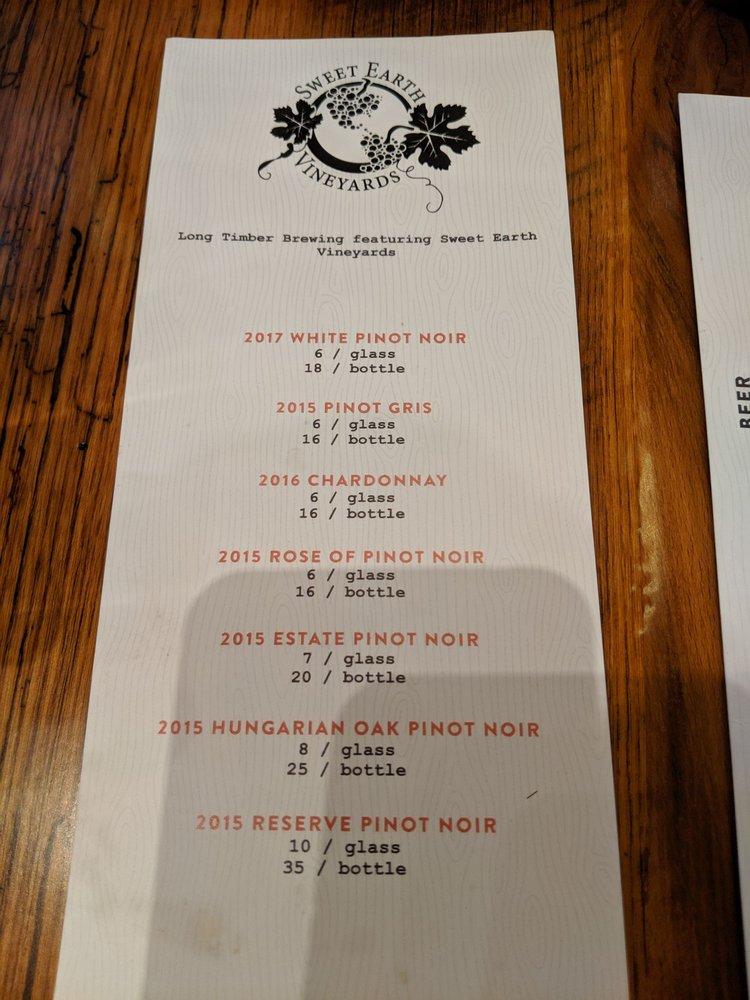 SWEET EARTH
VINEYARDS
Long Timber Brewing featuring Sweet Earth
Vineyards
2017 WHITE PINOT NOIR
6 / glass
18 / bottle
2015 PINOT GRIS
6 / glass
16 / bottle
2016 CHARDONNAY
6 / glass
16 / bottle
2015 ROSE OF PINOT NOIR
6 / glass
16 / bottle
2015 ESTATE PINOT NOIR
7 / glass
20 / bottle
2015 HUNGARIAN OAK PINOT NOIR
8 / glass
25 / bottle
2015 RESERVE PINOT NOIR
10 / glass
35 / bottle
BEER